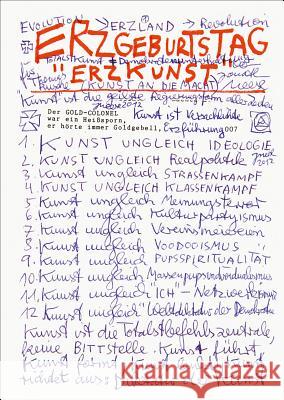 EVOLUTION → ERZLAND → Revolution
ERZGEBURTSTAG
"ERZKUNST"
für Thomas
KUNST AN DIE MACHT
"Kunst ist die
Der GOLD-COLONEL
war ein Heißsporn,
er hörte immer Goldgebell,
Kunst ist Verschickte
Erzführung007
1. KUNST UNGLEICH IDEOLOGIE,
2. KUNST UNGLEICH Realpolitik
3. Kunst ungleich STRASSENKAMPF
4. KUNST UNGLEICH KLASSENKAMPF
5 Kunst ungleich Meinungsterror
6 Kunst ungleich Kulturpartyismus
7 Kunst ungleich Vereinsmeiereien
8 Kunst ungleich VOODOOISMUS
9 Kunst ungleich PUPSSPIRITUALITÄT
10 Kunst ungleich Massenpupsindividualismus
11. Kunst ungleich "ICH"-
12 Kunst ungleich Weltdiktatur der Demokratie
Kunst ist die Totalstbefehlszentrale,
keine BITTSTELLE. Kunst führt,
Kunst formt,
richtet aus: Diktatur der Kunst